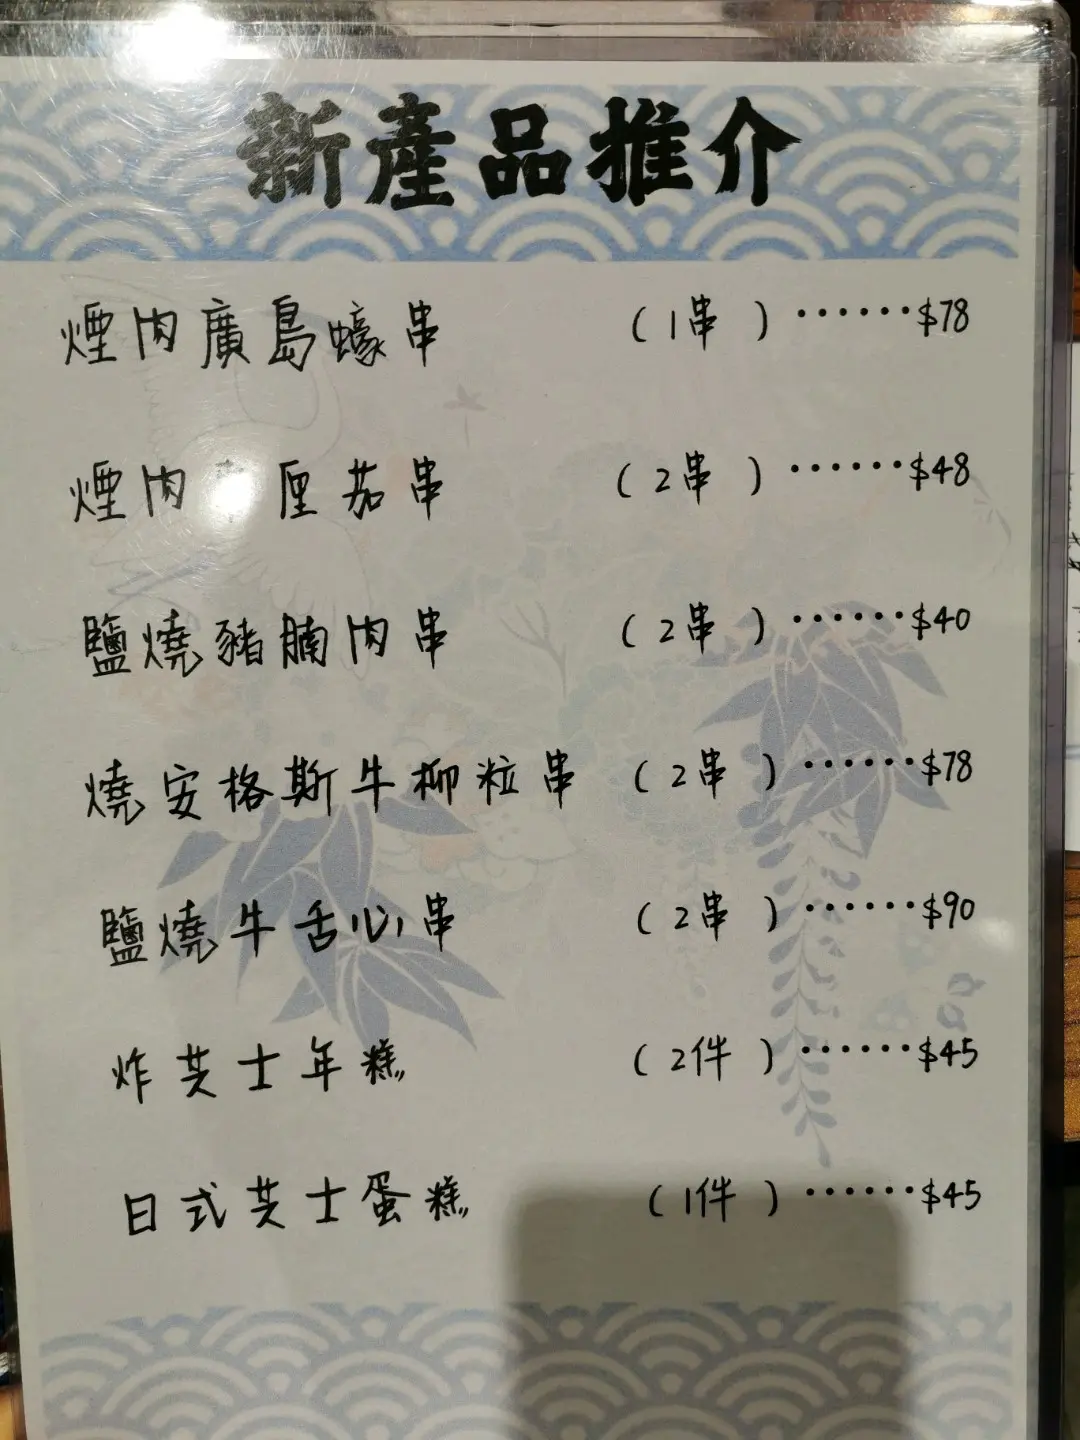 新產品推介
煙肉廣島蠔串 (1串) ······$78
煙肉 厘茄串 (2串) ······$48
鹽燒豬腩肉串 (2串) ······$40
燒安格斯牛柳粒串 (2串) ······$78
鹽燒牛舌心串 (2串) ······$90
炸芝士年糕 (2件) ······$45
日式芝士蛋糕 (1件) ······$45